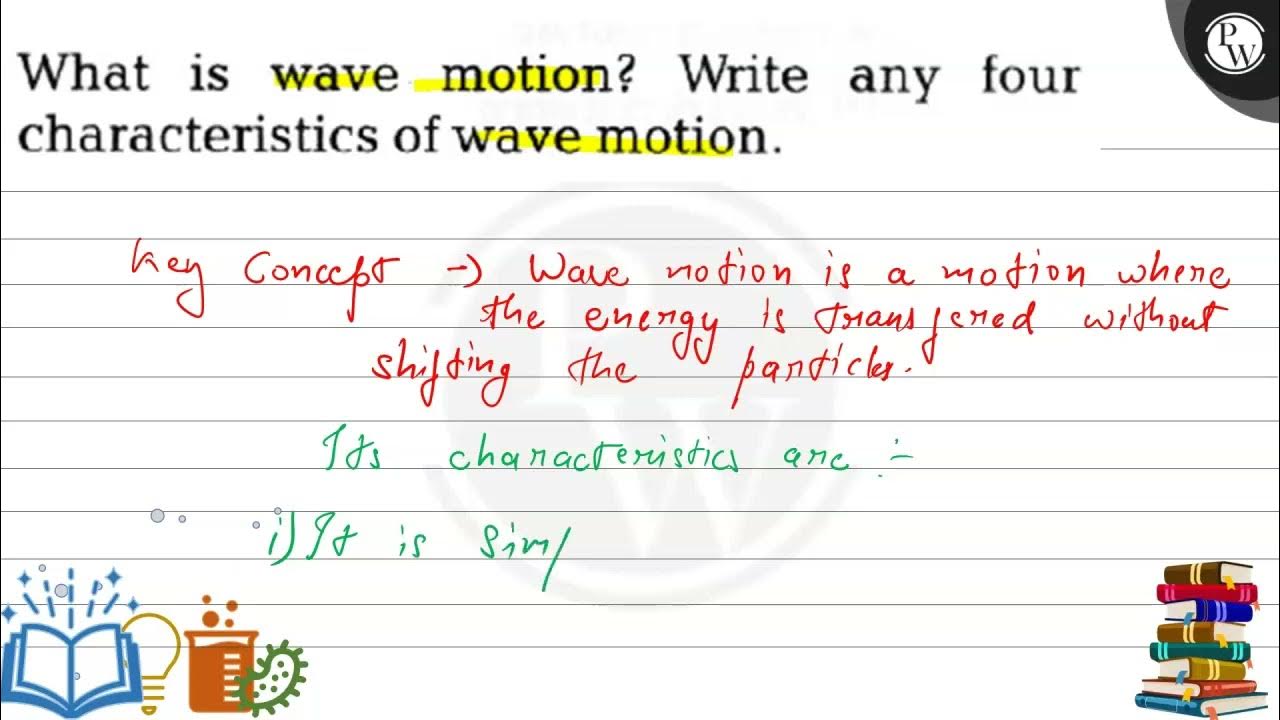 What is wave motion? Write any four
characteristics of wave motion.
Key Concept → Wave motion is a motion where
the energy is transfered without
shifting the particles.
Its characteristics are :-
i) It is Sim
PW
PW